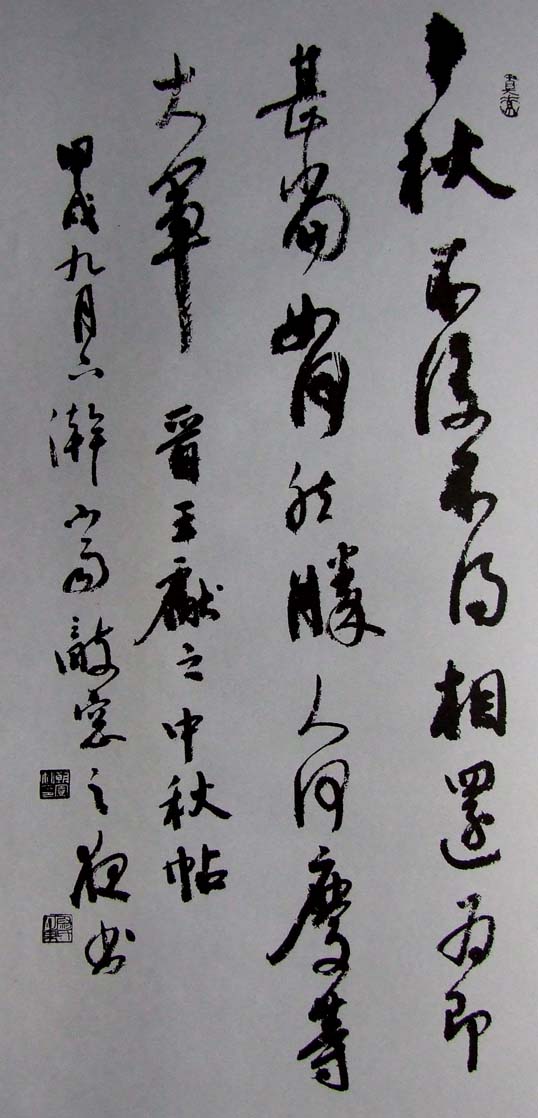 秋不復不得相還為即
甚省如何然勝人何慶等
大軍 晉王獻之中秋帖
甲戌九月下澣小雨敲窓之夜書